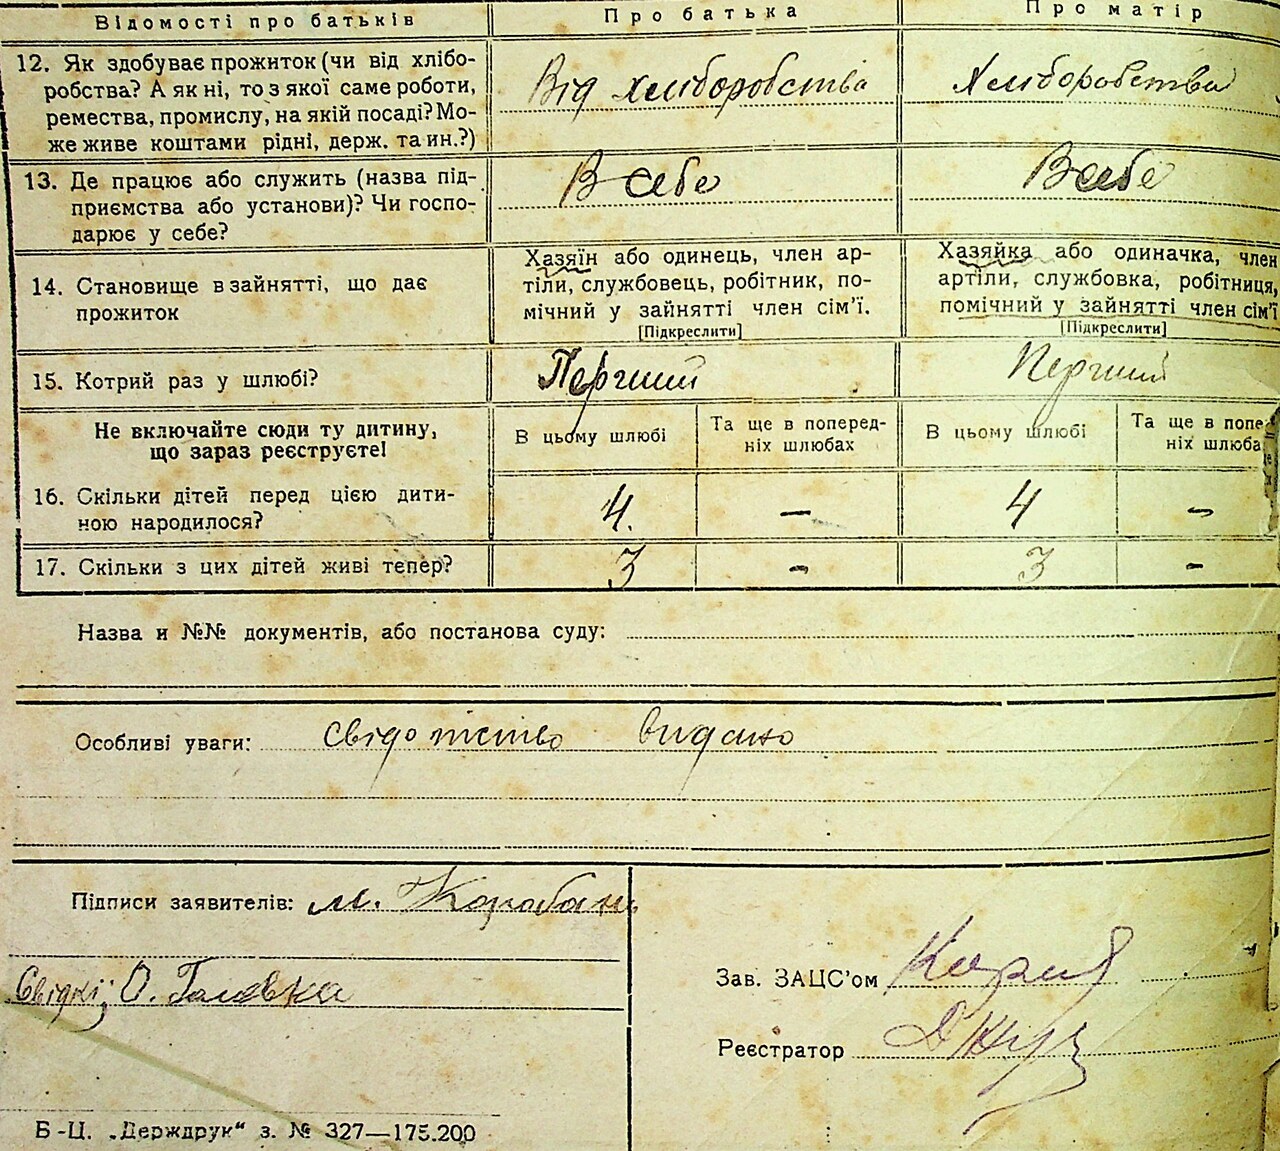 Відомості про батьків
Про батька
Про матір
12. Як здобуває прожиток (чи від хлібо-
робства? А як ні, то з якої саме роботи,
ремества, промислу, на якій посаді? Мо-
же живе коштами рідні, держ. та ин.?)
Від хліборобства
Хліборобства
13. Де працює або служить (назва під-
приємства або установи)? Чи госпо-
дарює у себе?
В себе
В себе
14. Становище в зайнятті, що дає
прожиток
Хазяїн або одинець, член ар-
тіли, службовець, робітник, по-
мічний у зайнятті член сім’ї.
[Підкреслити]
Хазяйка або одиначка, член
артіли, службовка, робітниця,
помічний у зайнятті член сім’ї
[Підкреслити]
15. Котрий раз у шлюбі?
Перший
Перший
Не включайте сюди ту дитину,
що зараз реєструєте!
В цьому шлюбі
Та ще в поперед-
ніх шлюбах
В цьому шлюбі
Та ще в попе
ніх шлюба
16. Скільки дітей перед цією дити-
ною народилося?
4.
—
4
—
17. Скільки з цих дітей живі тепер?
3
—
3
—
Назва и №№ документів, або постанова суду:
Особливі уваги: свідотство видано
Підписи заявителів: М. Карабань
Свідкі: О. Головка
Зав. ЗАЦС’ом
Реєстратор
Б-Ц. „Держдрук“ з. № 327—175.200